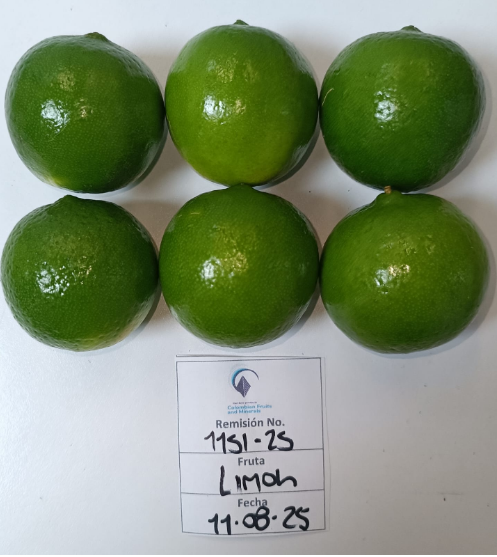 Colombian Fruits
and Materials
Remisión No.
1151-25
Fruta
Limon
Fecha
11-08-25